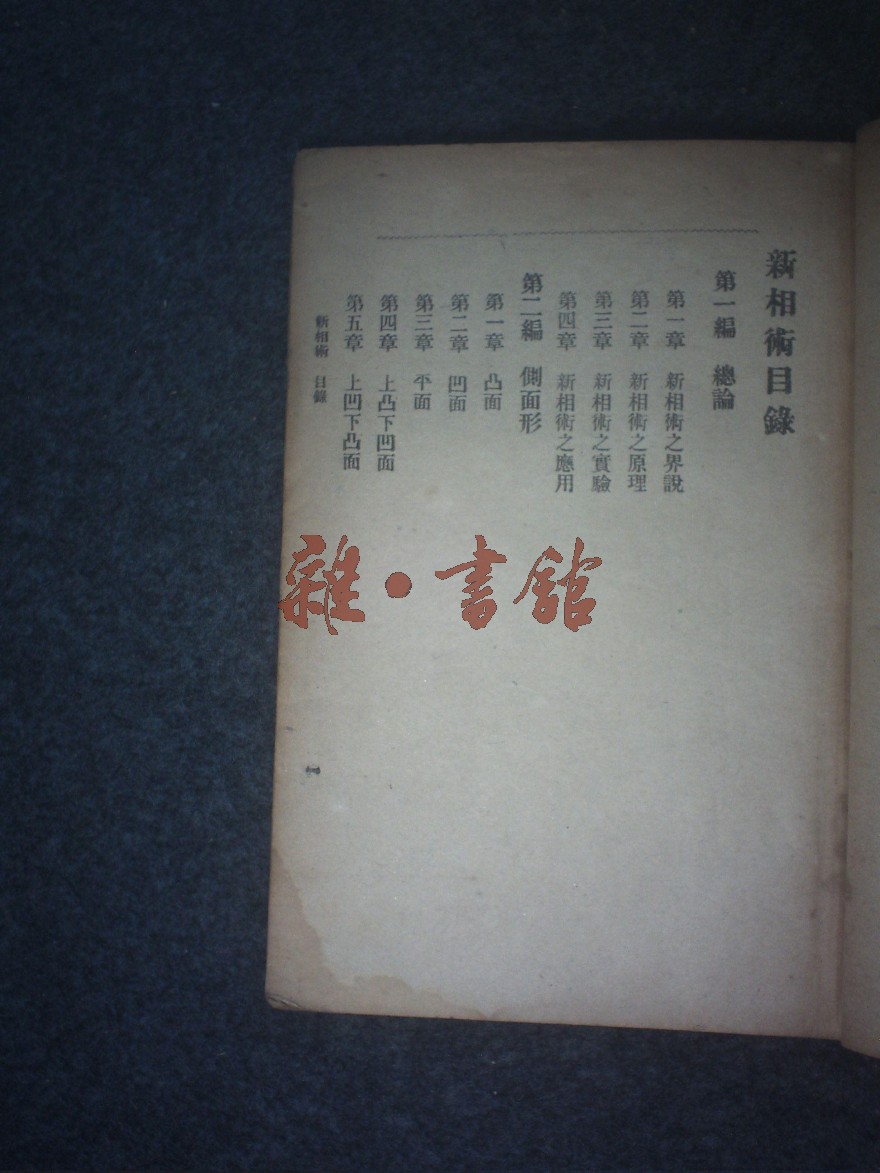 新相術目錄
第一編 總論
第一章 新相術之界說
第二章 新相術之原理
第三章 新相術之實驗
第四章 新相術之應用
第二編 側面形
第一章 凸面
第二章 凹面
第三章 平面
第四章 上凸下凹面
第五章 上凹下凸面
新相術 目錄
一
雜·書館